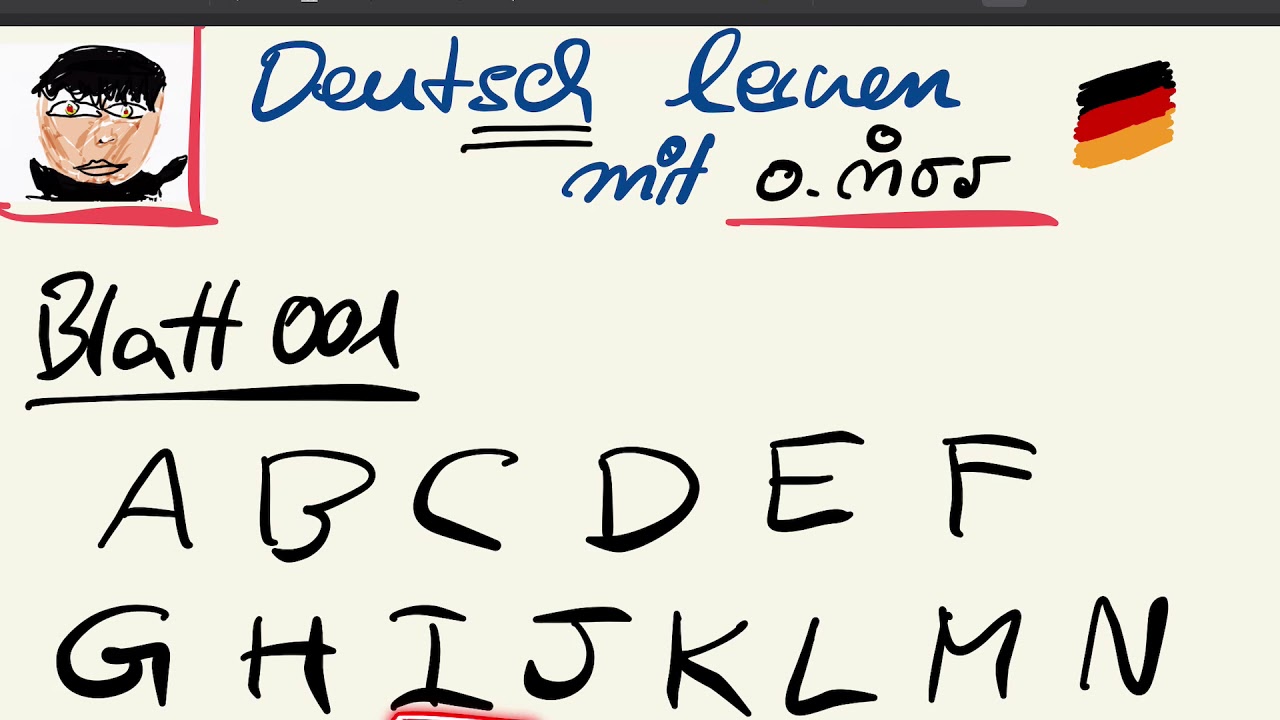 Deutsch lernen
mit
Blatt 001
A B C D E F
G H I J K L M N